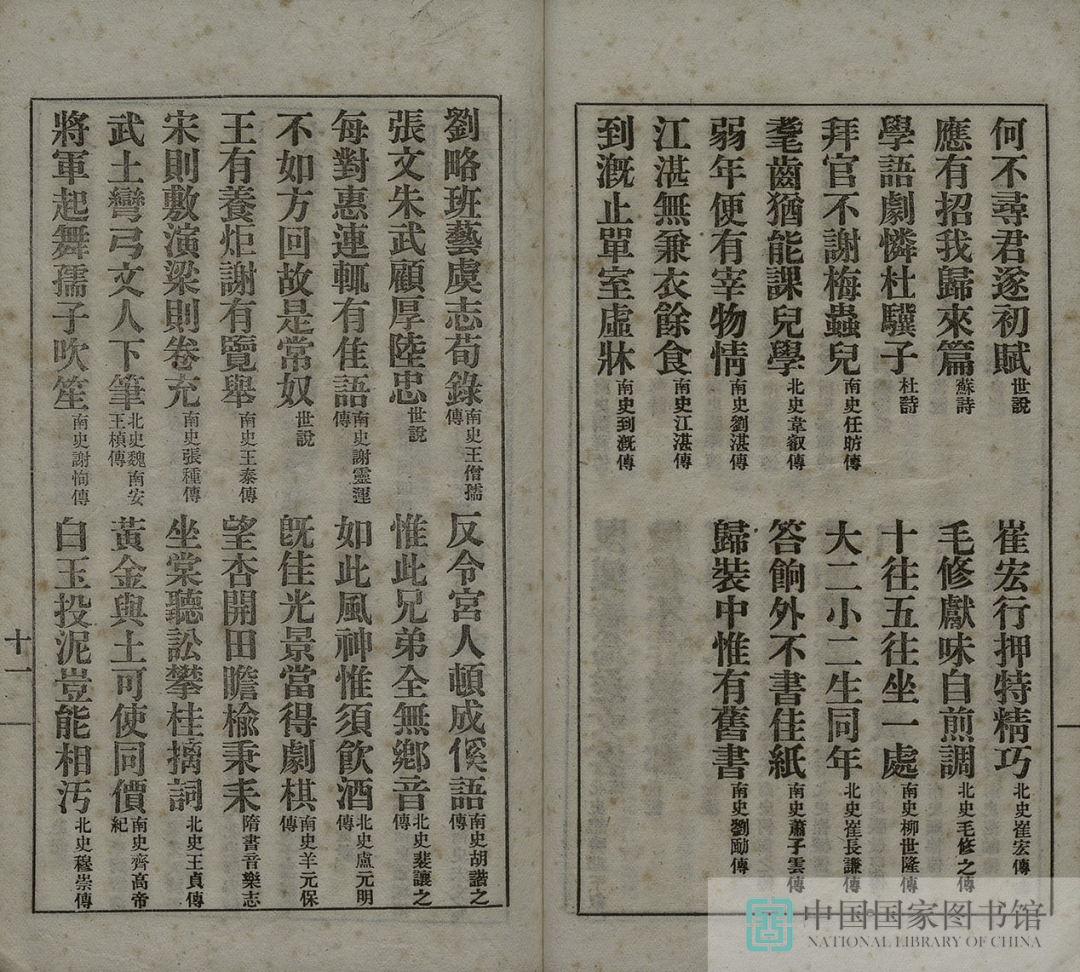 何不尋君遂初賦世說
崔宏行押特精巧北史崔宏傳
應有招我歸來篇蘇詩
毛修獻味自煎調北史毛修之傳
學語劇憐杜驥子杜詩
十往五往坐一處南史柳世隆傳
拜官不謝梅蟲兒南史任昉傳
大二小二生同年北史崔長謙傳
耄齒猶能課兒學北史韋叡傳
答餉外不書佳紙南史蕭子雲傳
弱年便有宰物情南史劉湛傳
歸裝中惟有舊書南史劉勔傳
江湛無兼衣餘食南史江湛傳
到溉止單室虛牀南史到溉傳
劉略班藝虞志荀錄南史王僧孺傳
反令宮人頓成傒語南史胡諧之傳
張文朱武顧厚陸忠世說
惟此兄弟全無鄉音北史裴讓之傳
每對惠連輒有佳語南史謝靈運傳
如此風神惟須飲酒北史盧元明傳
不如方回故是常奴世說
旣佳光景當得劇棋南史羊元保傳
王有養炬謝有覽舉南史王泰傳
望杏開田瞻榆秉耒隋書音樂志
宋則敷演梁則卷充南史張種傳
坐棠聽訟攀桂摛詞北史王貞傳
武士彎弓文人下筆北史魏南安王楨傳
黃金與土可使同價南史齊高帝紀
將軍起舞孺子吹笙南史謝恂傳
白玉投泥豈能相汚北史穆崇傳
十一
中国国家图书馆
NATIONAL LIBRARY OF CHINA